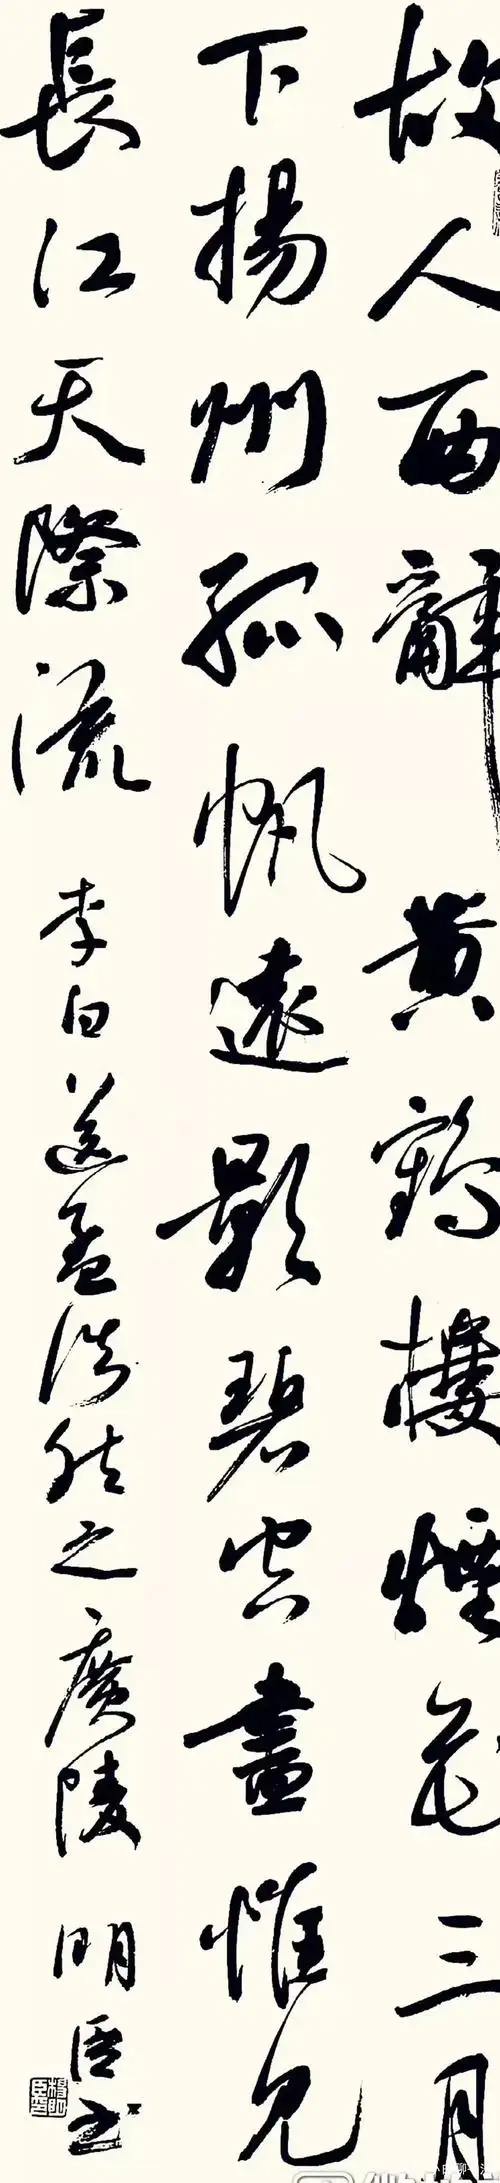 故人西辭黄鶴樓煙花三月
下揚州孤帆遠影碧空盡惟見
長江天際流
李白送孟浩然之廣陵 明臣書